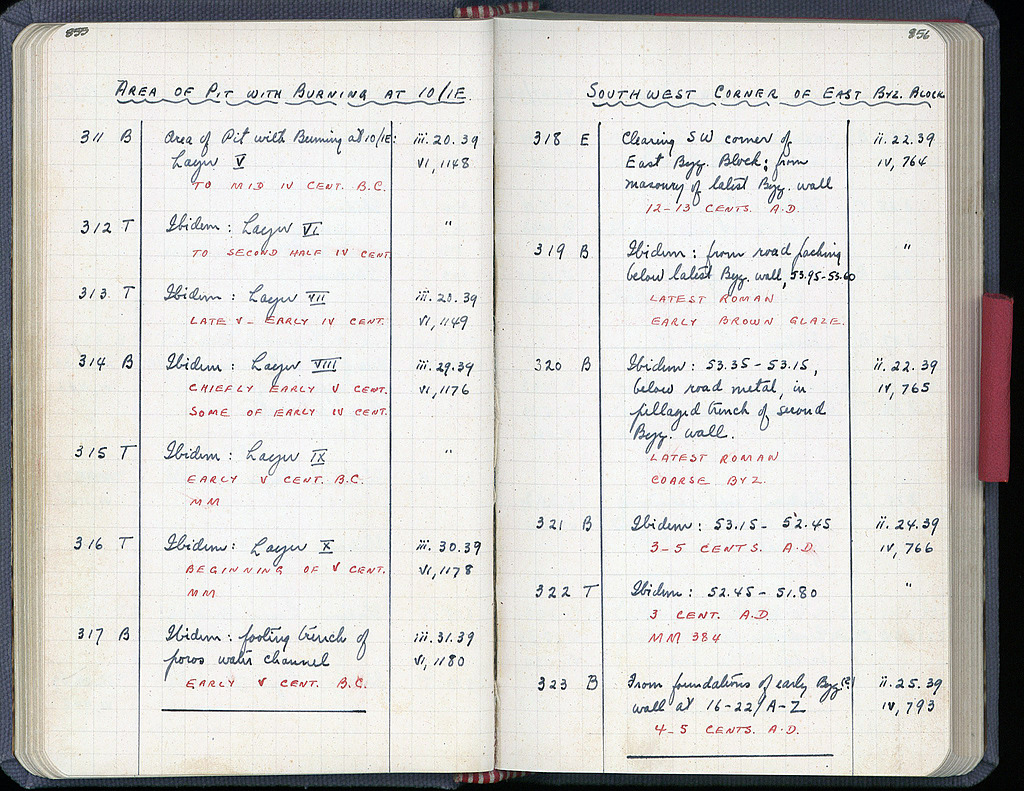 855
AREA OF PIT WITH BURNING AT 10/ΙΕ.
311 B Area of Pit with Burning at 10/ΙΕ: iii.20.39
Layer V VI, 1148
TO MID IV CENT. B.C.
312 T Ibidem: Layer VI "
TO SECOND HALF IV CENT.
313 T Ibidem: Layer VII iii.20.39
LATE V - EARLY IV CENT. VI, 1149
314 B Ibidem: Layer VIII iii.29.39
CHIEFLY EARLY V CENT. VI, 1176
SOME OF EARLY IV CENT.
315 T Ibidem: Layer IX "
EARLY V CENT. B.C.
MM
316 T Ibidem: Layer X iii.30.39
BEGINNING OF V CENT. VI, 1178
MM
317 B Ibidem: footing trench of iii.31.39
poros water channel VI, 1180
EARLY V CENT. B.C.
856
SOUTHWEST CORNER OF EAST BYZ. BLOCK
318 E Clearing SW corner of ii.22.39
East Byz. Block; from IV, 764
masonry of latest Byz. wall
12-13 CENTS. A.D.
319 B Ibidem: from road packing "
below latest Byz. wall, 53.95-53.60
LATEST ROMAN
EARLY BROWN GLAZE.
320 B Ibidem: 53.35-53.15, ii.22.39
below road metal, in IV, 765
pillaged trench of second
Byz. wall.
LATEST ROMAN
COARSE BYZ.
321 B Ibidem: 53.15- 52.45 ii.24.39
3-5 CENTS. A.D. IV, 766
322 T Ibidem: 52.45- 51.80 "
3 CENT. A.D.
MM 384
323 B From foundations of early Byz(?) ii.25.39
wall at 16-22/Α-Ζ IV, 793
4-5 CENTS. A.D.